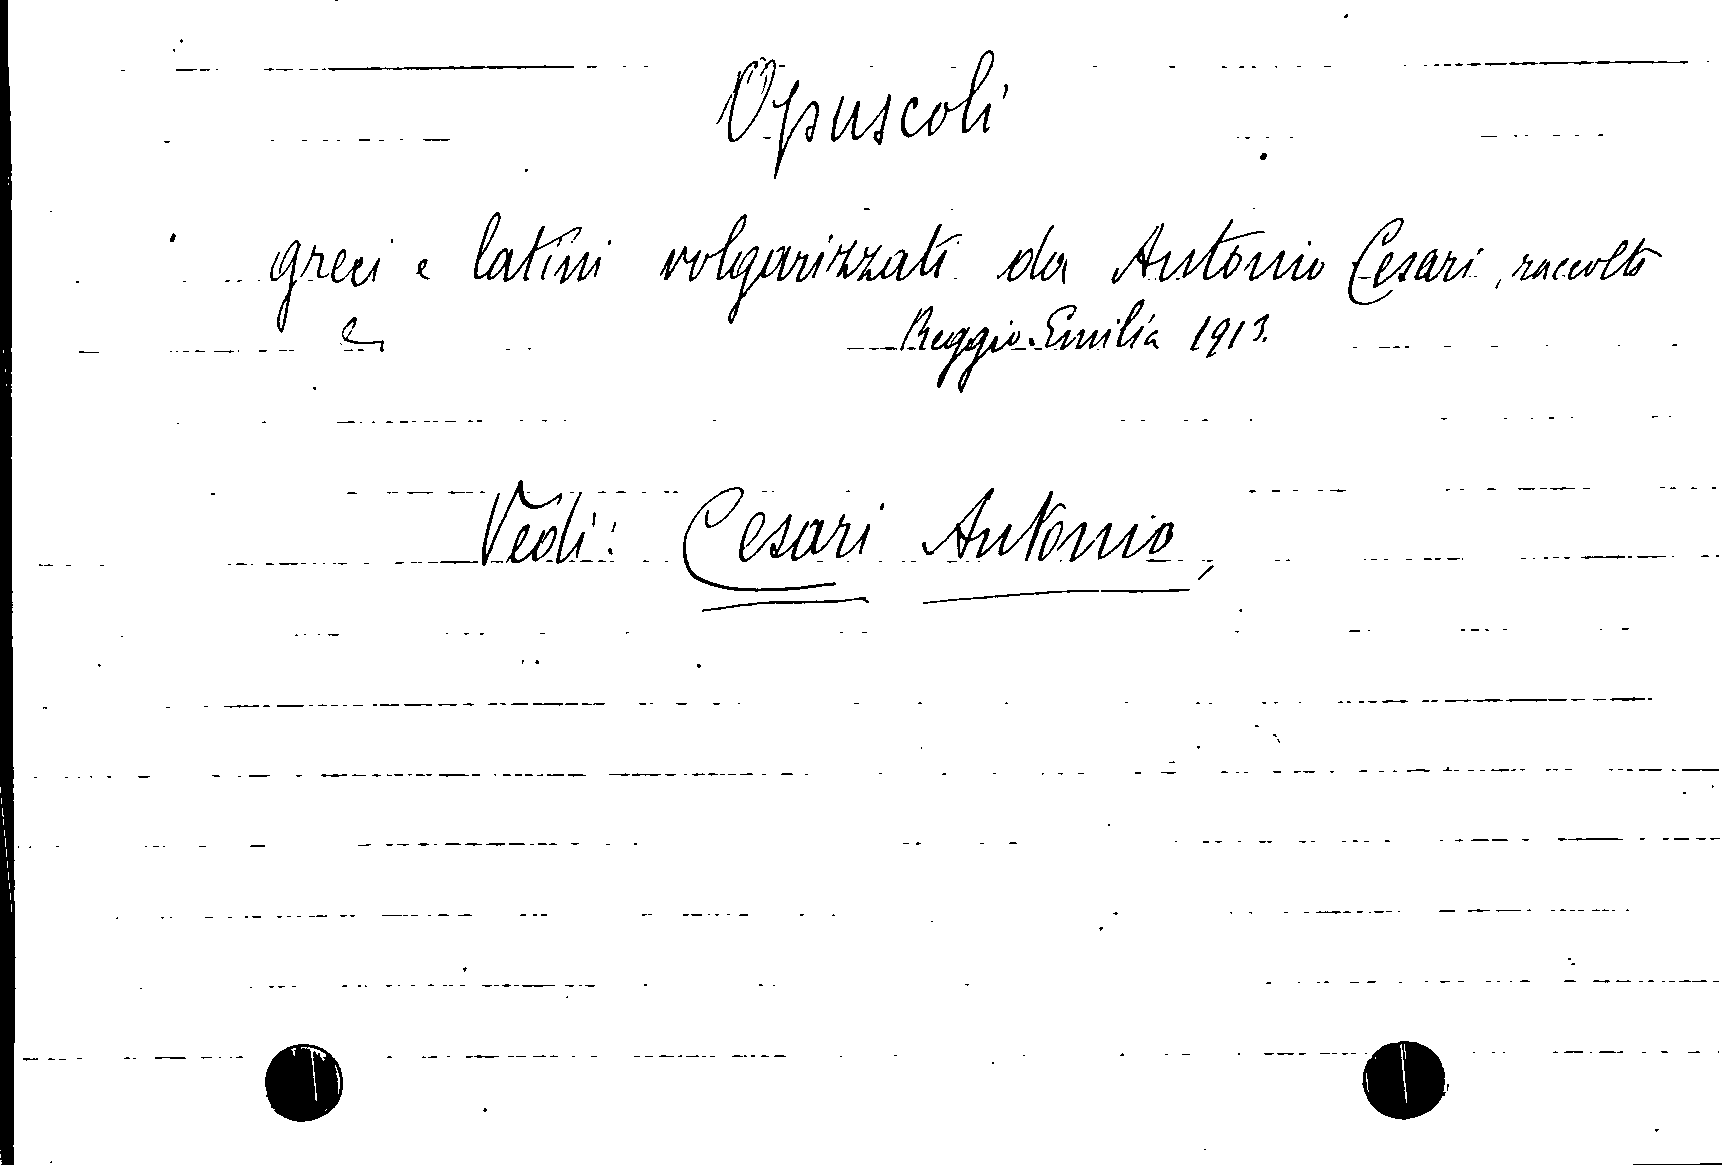 Opuscoli
greci e latini volgarizzati da Antonio Cesari, raccolti
e Reggio-Emilia 1913.
Vedi: Cesari Antonio,